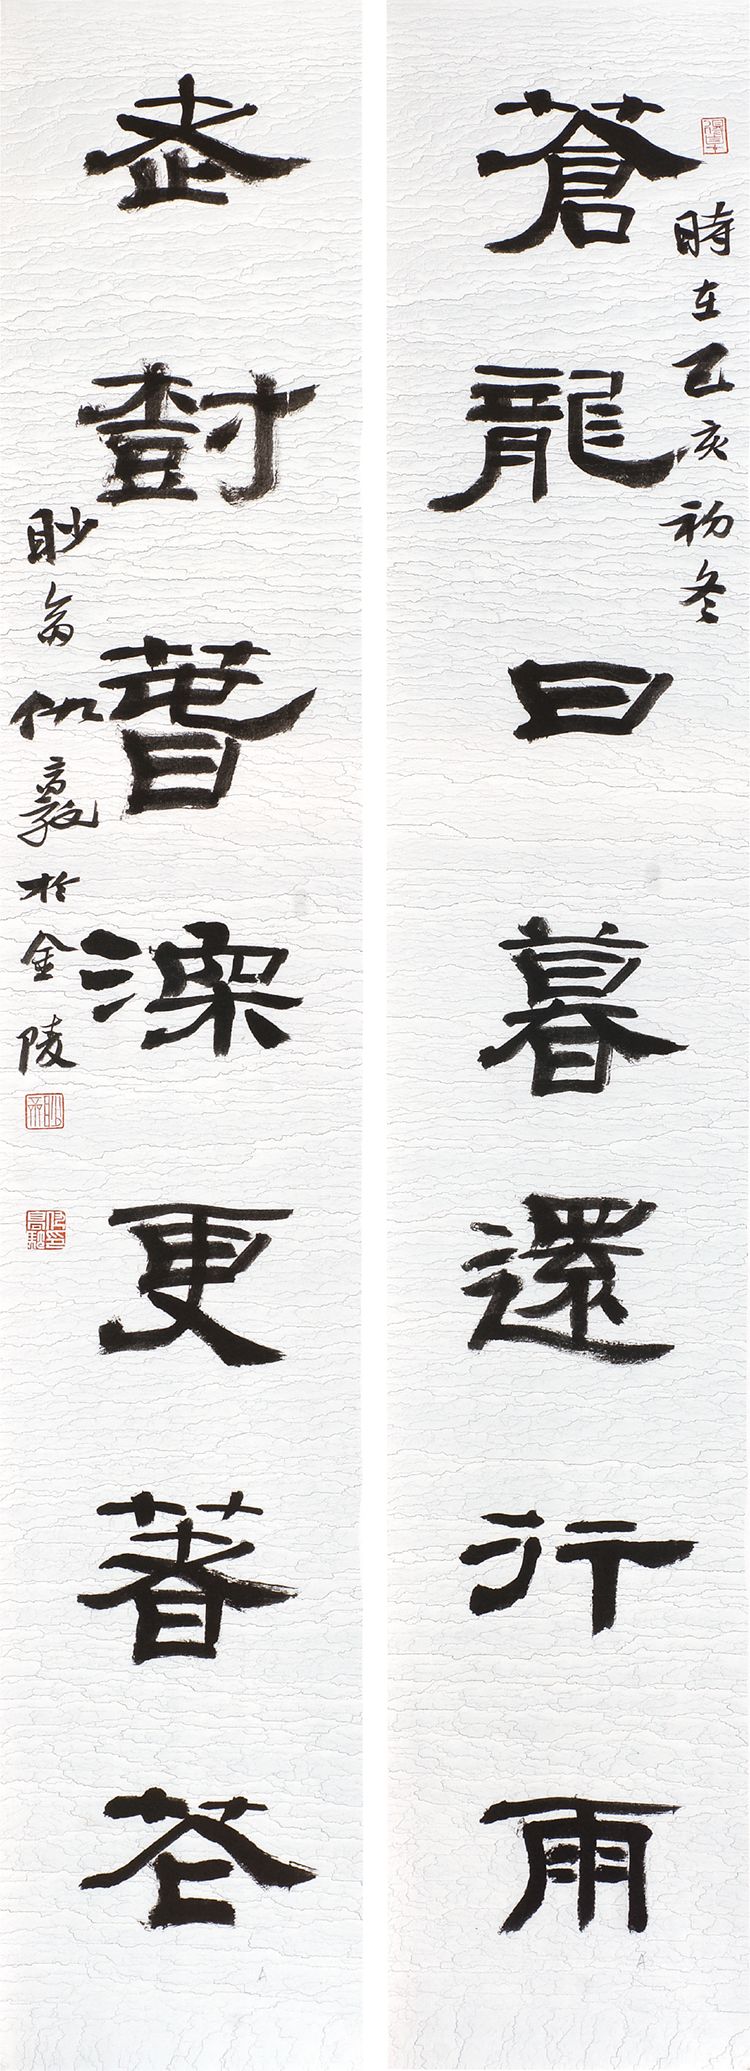 時在乙亥初冬
蒼龍日暮還行雨
老樹春深更著花
眇 仇 於金陵